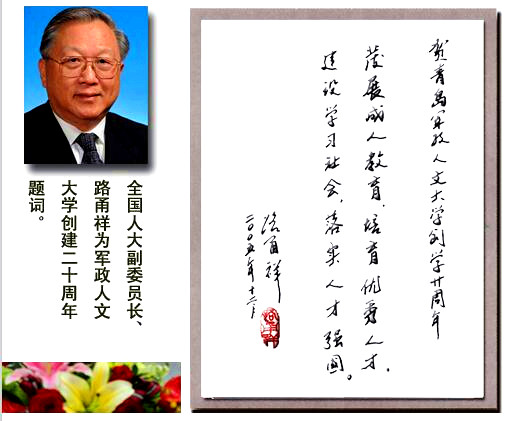 全国人大副委员长、
路甬祥为军政人文
大学创建二十周年
题词。
贺青岛军政人文大学创学廿周年
發展成人教育，培育优秀人才，
建设学习社会，落实人才强国。
路甬祥
二〇〇五年十二